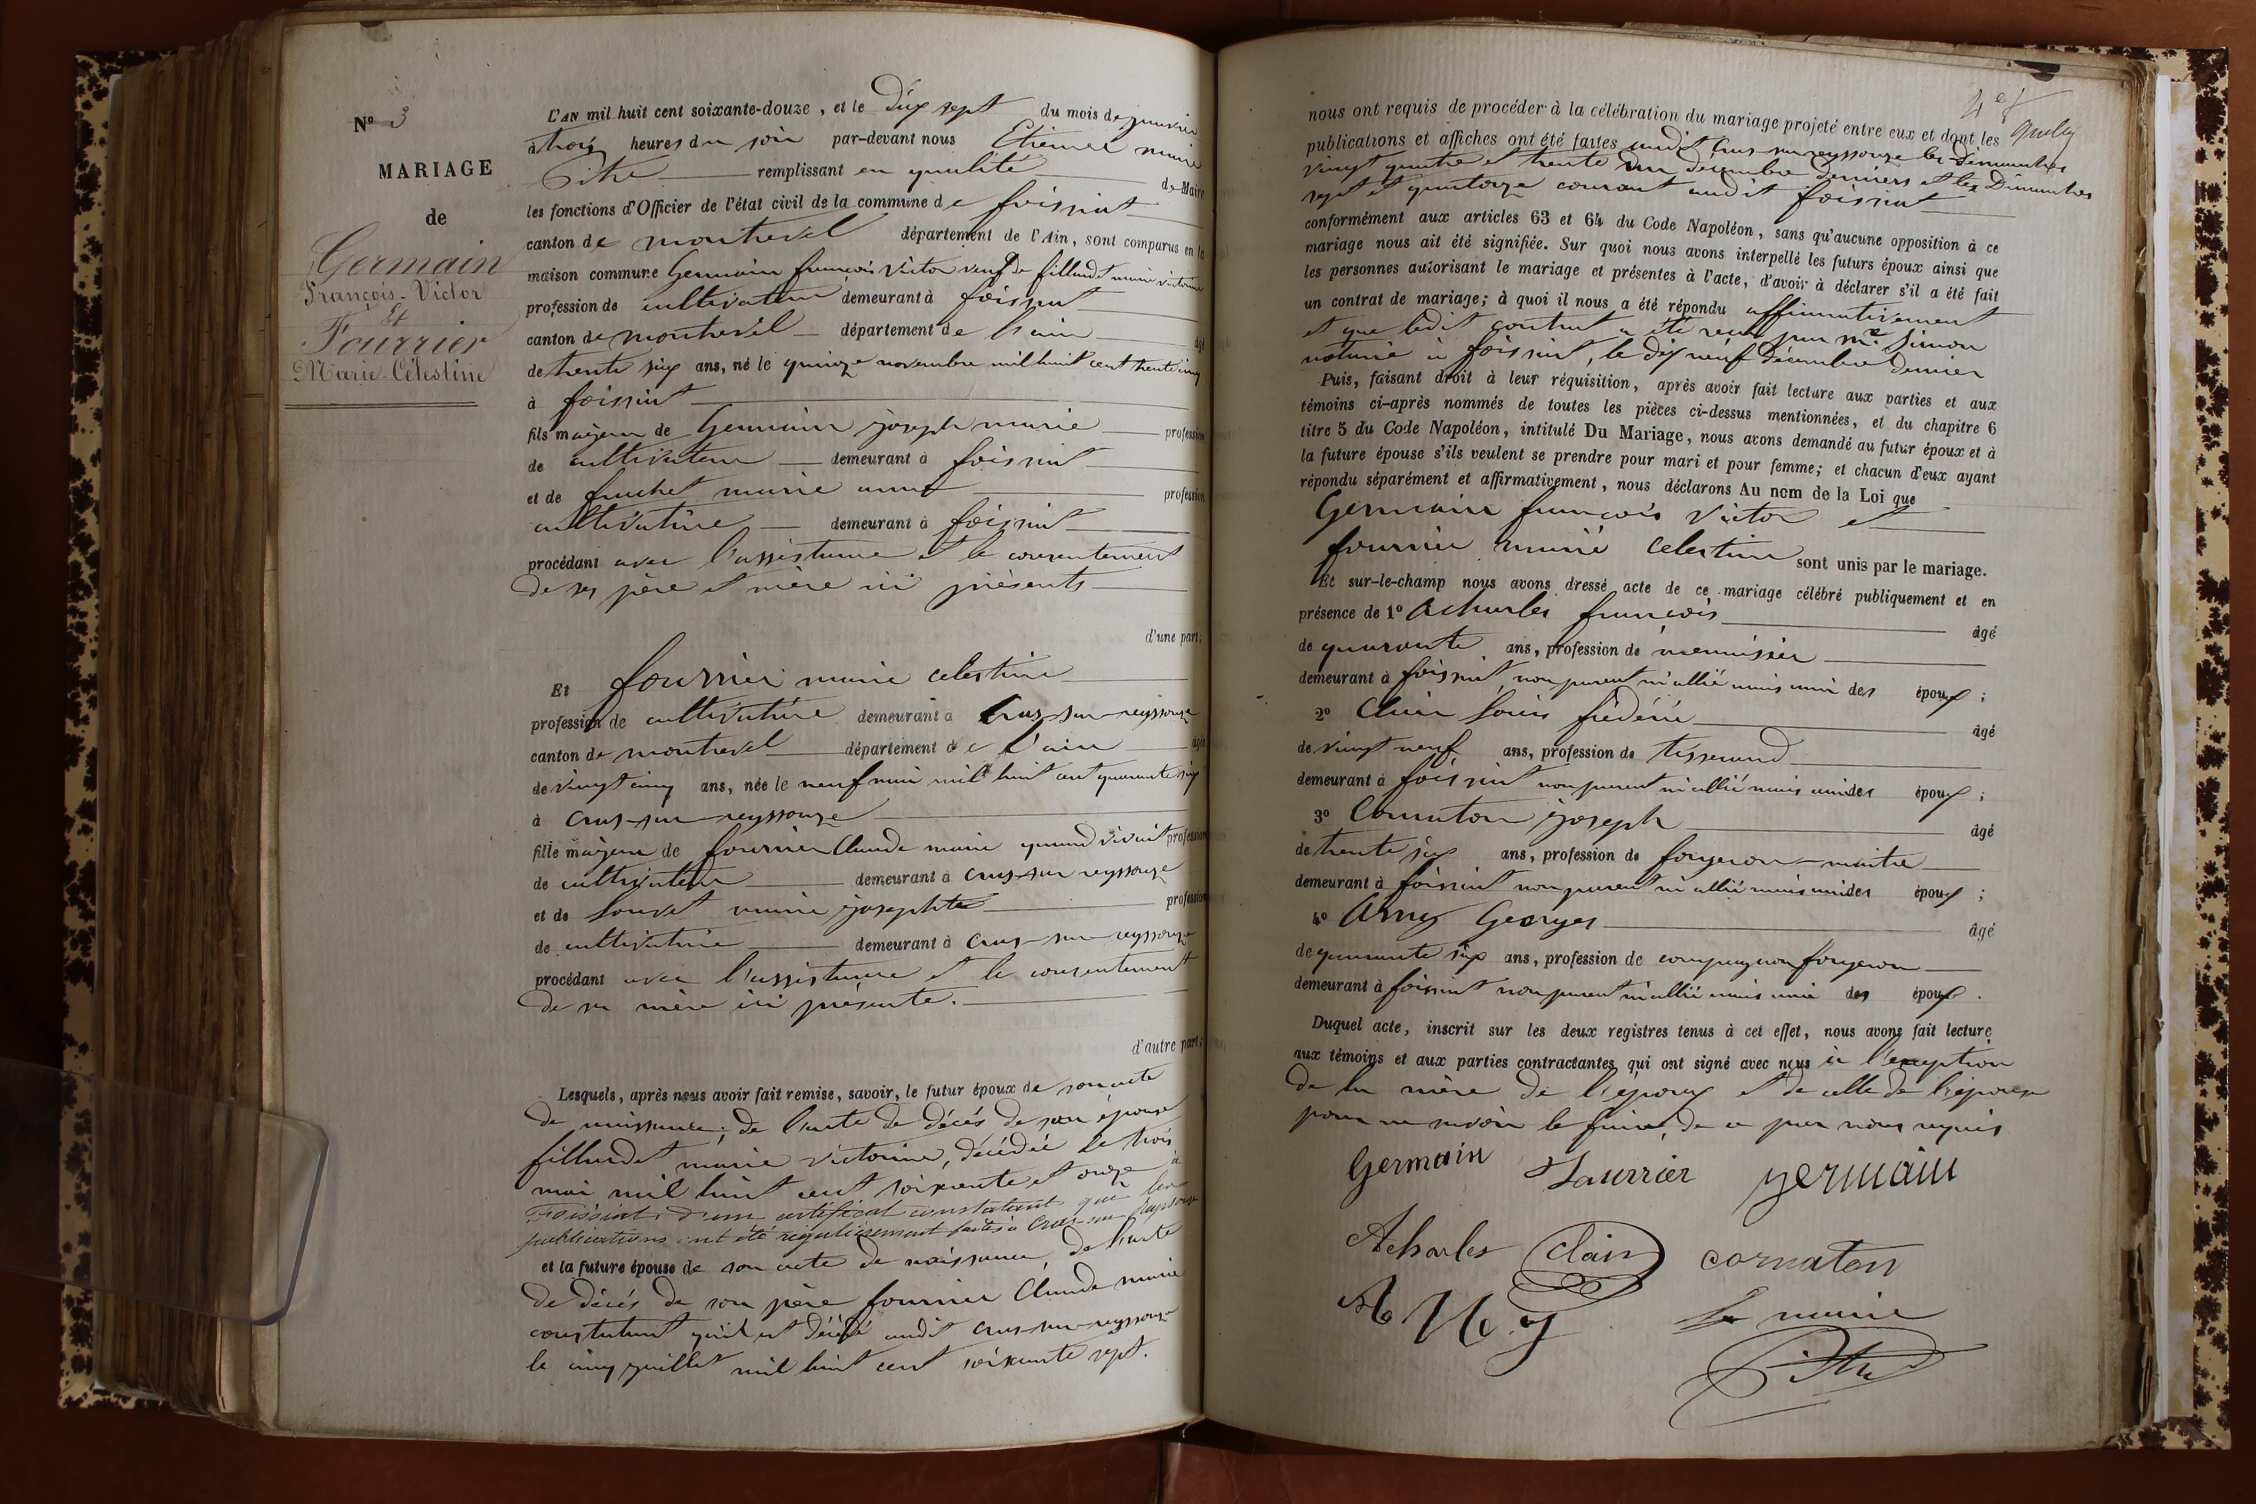 Nº 3
MARIAGE
de
Germain
François-Victor
Et
Fourrier
Marie-Célestine
L'AN mil huit cent soixante-douze, et le dix sept du mois de janvier
à trois heures du soir par-devant nous Etienne marie
Pitre remplissant en qualité de Maire
les fonctions d'Officier de l'état civil de la commune de foissiat
canton de montrevel département de l'Ain, sont comparus en la
maison commune Germain françois victor veuf de fillardet marie victorine
profession de cultivateur demeurant à foissiat
canton de montrevel département de l'ain âgé
de trente six ans, né le quinze novembre mil huit cent trente cinq
à foissiat
fils majeur de Germain joseph marie profession
de cultivateur demeurant à foissiat
et de marie anne profession
cultivatrice demeurant à foissiat
procédant avec l'assistance et le consentement
de ses père et mère ici présents
d'une part;
Et fourrier marie celestine
profession de cultivatrice demeurant à Cras-sur-reyssouze
canton de montrevel département de l'ain âgée
de vingt cinq ans, née le neuf mai mil huit cent quarante six
à Cras-sur-reyssouze
fille majeure de fourrier Claude marie quand vivait profession
de cultivateur demeurant à Cras-sur reyssouze
et de marie josephte profession
de cultivatrice demeurant à Cras-sur-reyssouze
procédant avec l'assistance et le consentement
de sa mère ici présente.
d'autre part;
Lesquels, après nous avoir fait remise, savoir, le futur époux de son acte
de naissance; de l'acte de décès de son épouse
fillardet marie victorine, décédée le trois
mai mil huit cent soixante et onze à
Foissiat, d'un certificat constatant que les
publications ont été régulièrement faites à Cras-sur-Reyssouze
et la future épouse de son acte de naissance, de l'acte
de décès de son père fourrier Claude marie
constatant qu'il est décédé audit Cras-sur-reyssouze
le cinq juillet mil huit cent soixante sept.
nous ont requis de procéder à la célébration du mariage projeté entre eux et dont les
publications et affiches ont été faites audit Cras-sur-reyssouze les Dimanches
vingt quatre et trente un décembre derniers et les Dimanches
sept et quatorze courant audit foissiat
conformément aux articles 63 et 64 du Code Napoléon, sans qu'aucune opposition à ce
mariage nous ait été signifiée. Sur quoi nous avons interpellé les futurs époux ainsi que
les personnes autorisant le mariage et présentes à l'acte, d'avoir à déclarer s'il a été fait
un contrat de mariage; à quoi il nous a été répondu affirmativement
et que ledit contrat a été reçu par me Simon
notaire à foissiat, le dix neuf décembre dernier
Puis, faisant droit à leur réquisition, après avoir fait lecture aux parties et aux
témoins ci-après nommés de toutes les pièces ci-dessus mentionnées, et du chapitre 6
titre 5 du Code Napoléon, intitulé Du Mariage, nous avons demandé au futur époux et à
la future épouse s'ils veulent se prendre pour mari et pour femme; et chacun d'eux ayant
répondu séparément et affirmativement, nous déclarons Au nom de la Loi que
Germain françois victor et
fourrier marie celestine sont unis par le mariage.
Et sur-le-champ nous avons dressé acte de ce mariage célébré publiquement et en
présence de 1º Acharles françois âgé
de quarante ans, profession de menuisier
demeurant à foissiat non parent ni allié mais ami des époux;
2º Clair Louis frédéric âgé
de vingt neuf ans, profession de tisserand
demeurant à foissiat non parent ni allié mais ami des époux;
3º Cornaton joseph âgé
de trente six ans, profession de forgeron-maitre
demeurant à foissiat non parent ni allié mais ami des époux;
4º Amy Georges âgé
de quarante six ans, profession de compagnon forgeron
demeurant à foissiat non parent ni allié mais ami des époux.
Duquel acte, inscrit sur les deux registres tenus à cet effet, nous avons fait lecture
aux témoins et aux parties contractantes qui ont signé avec nous à l'exception
de la mère de l'époux et de celle de l'épouse
pour ne savoir le faire, de ce par nous requis
Germain Fourrier germain
Acharles Clair cornaton
Le maire
Pitre